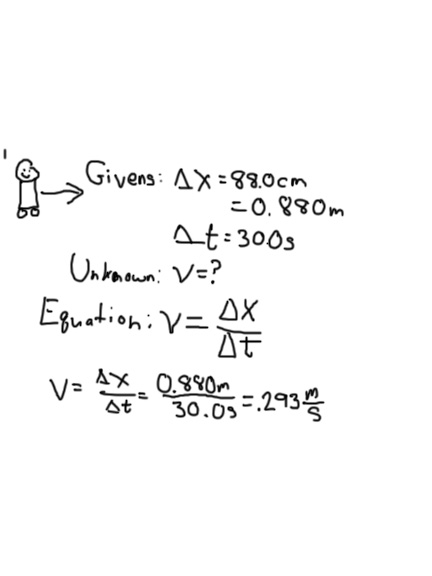 Givens: Δx = 88.0cm
= 0.880m
Δt = 30.0s
Unknown: V=?
Equation: V = Δx/Δt
V = Δx/Δt = 0.880m/30.0s = .293 m/s